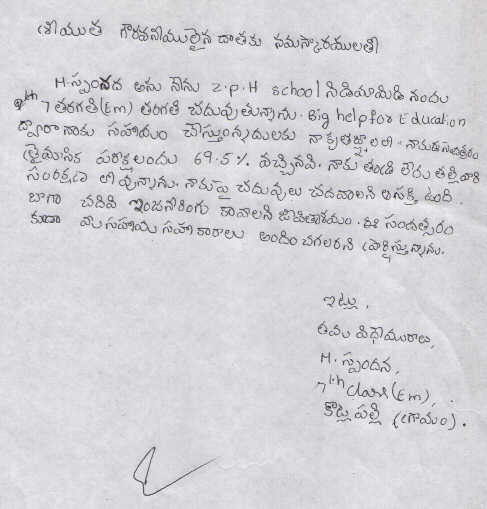 శ్రీయుత గౌరవనీయులైన దాతకు నమస్కారములతో
H. స్పందన అను నేను Z.P.H School నిడియామిడి నందు
7th తరగతి (Em) తరగతి చదువుతున్నాను. Big help for Education
ద్వారా నాకు సహాయం చేస్తున్నందులకు నా కృతజ్ఞతలు. నాకు ఈ సంవత్సరం
త్రైమాసిక పరీక్షలందు 69.5% వచ్చినవి. నాకు తండ్రి లేరు తల్లి గారి
సంరక్షణ లో వున్నాను. నాకు పై చదువులు చదవాలని ఆసక్తి ఉంది.
బాగా చదివి ఇంజనీరింగు కావాలని జీవితాశయం. ఈ సంవత్సరం
కూడా మీ సహాయ సహకారాలు అందించగలరని ప్రార్థిస్తున్నాను.
ఇట్లు,
తమ విధేయురాలు,
H. స్పందన,
7th Class (Em),
కొట్ల పల్లి (గ్రామం).